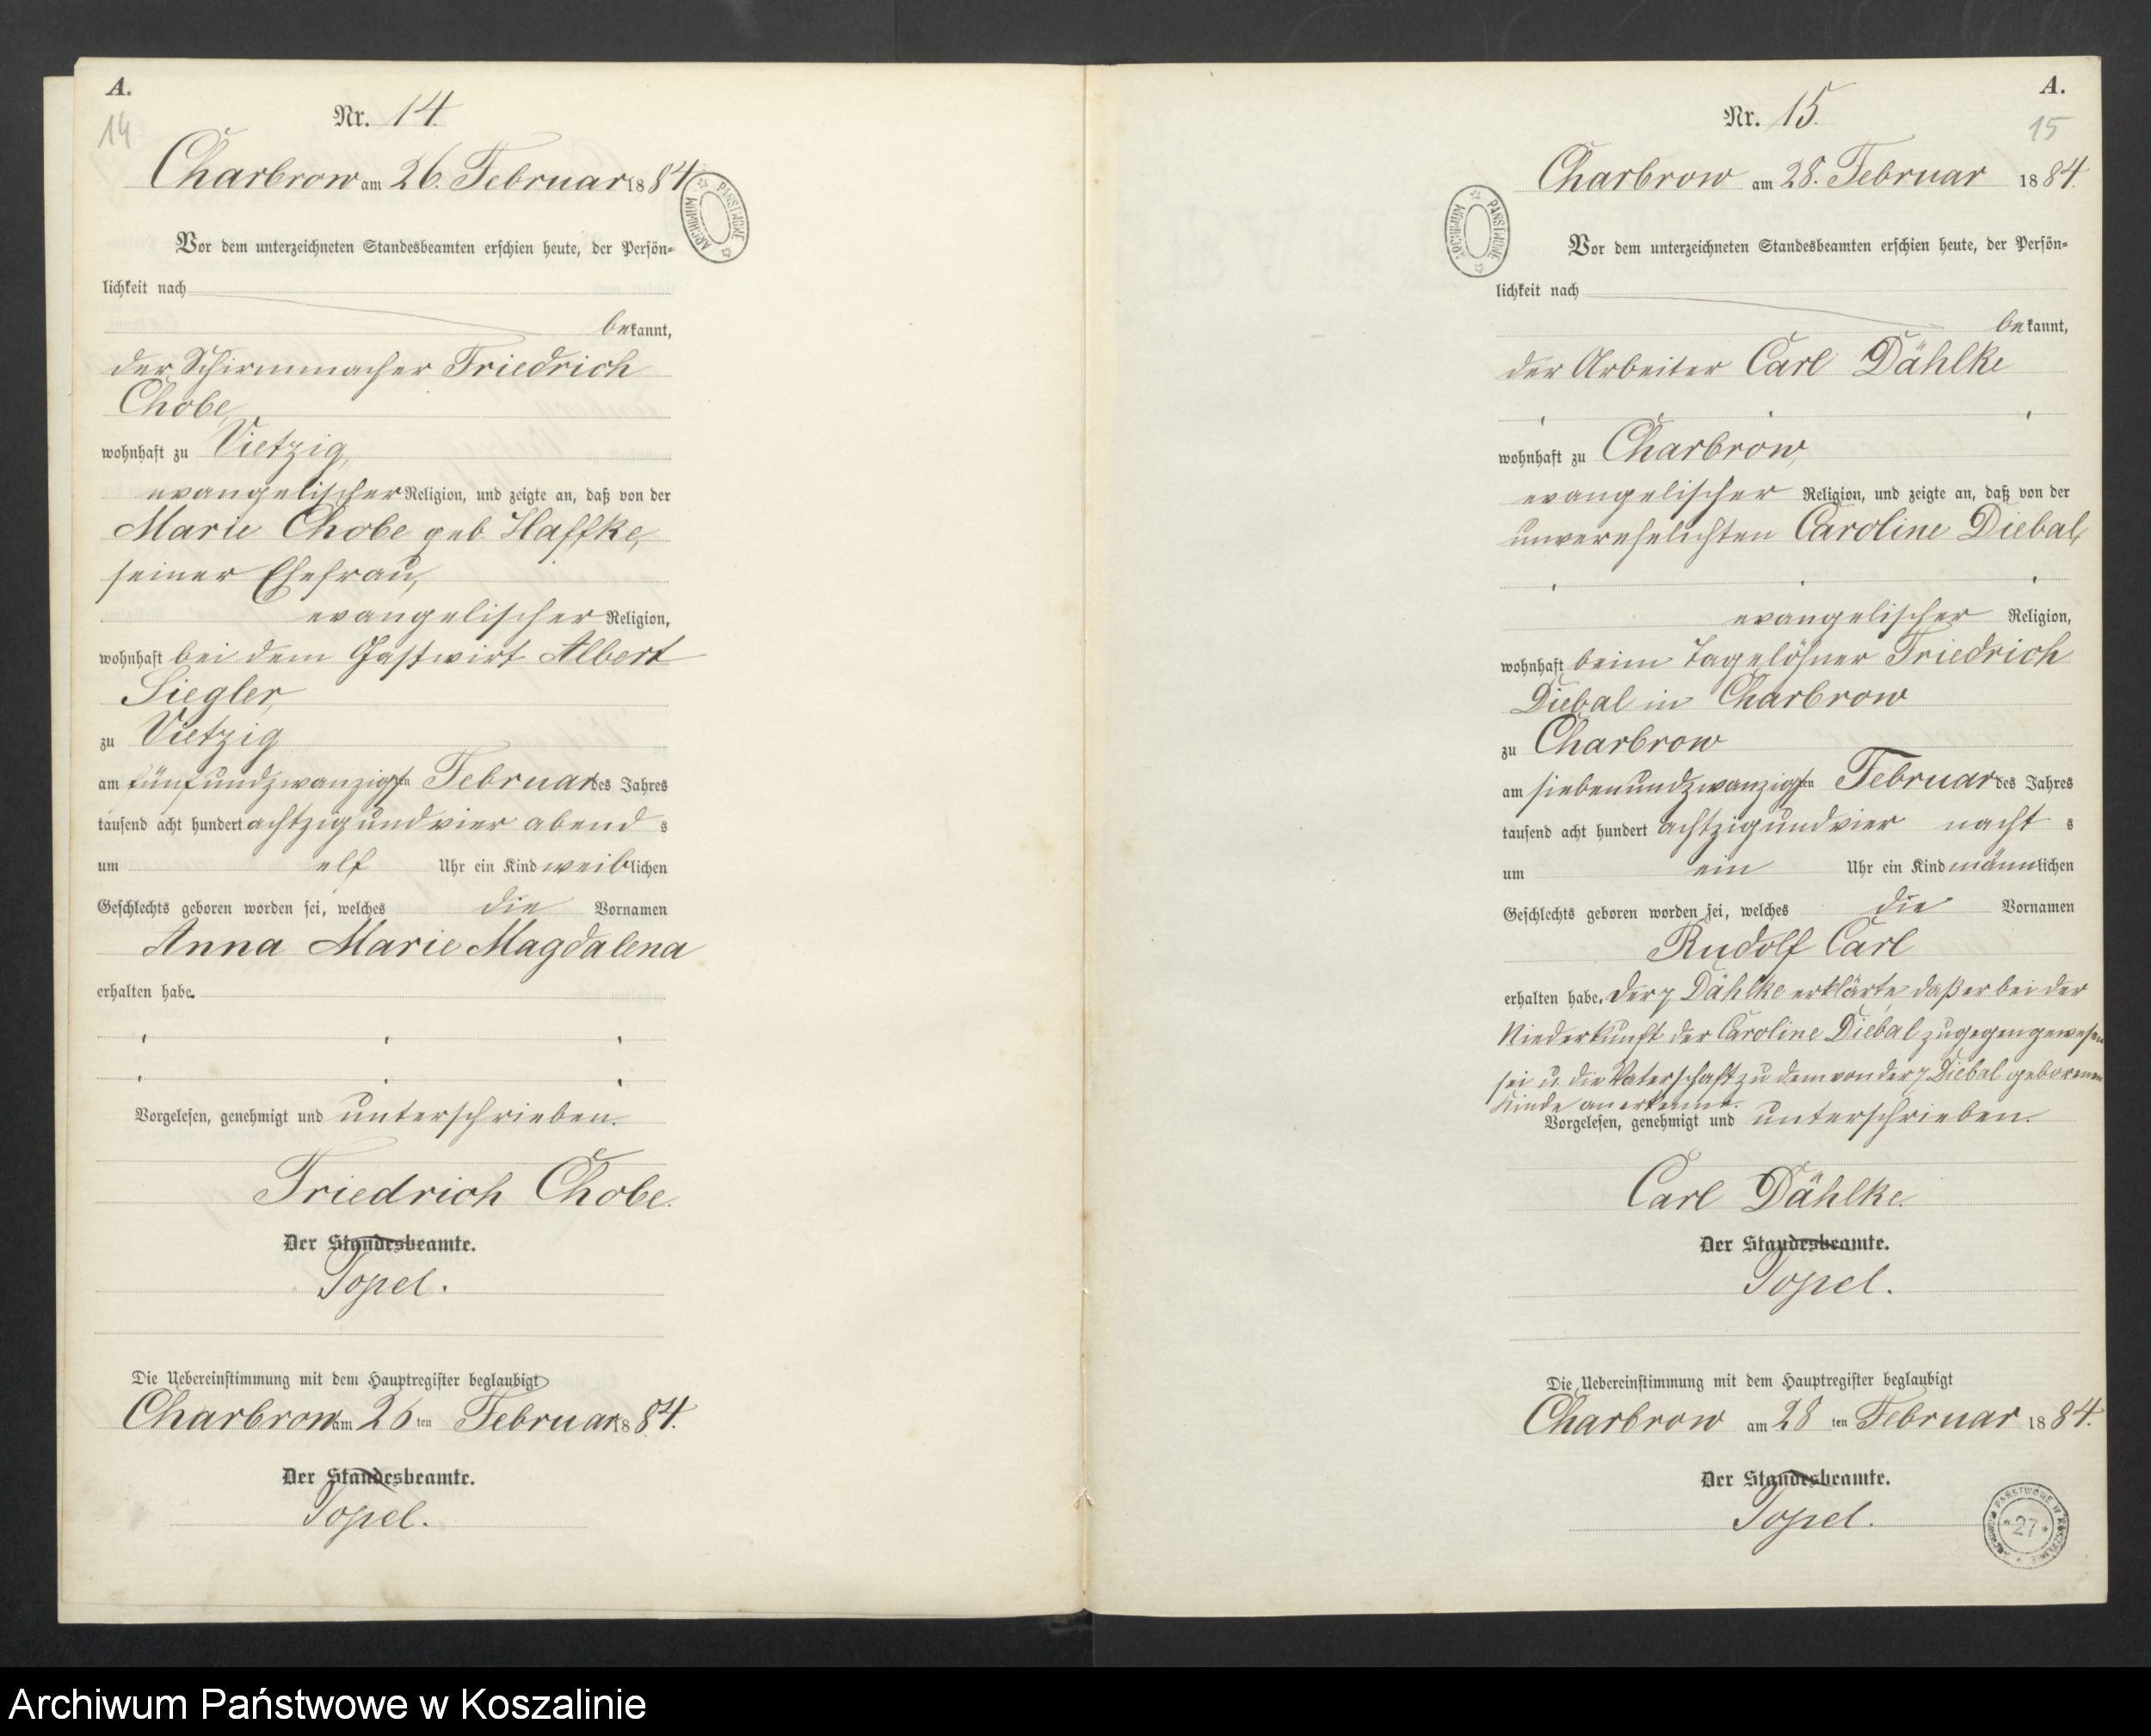 A.
14
Nr. 14.
Charbrow am 26. Februar 1884.
ARCHIWUM PAŃSTWOWE
Vor dem unterzeichneten Standesbeamten erschien heute, der Persön-
lichkeit nach
bekannt,
der Schirmmacher Friedrich
Chobe,
wohnhaft zu Vietzig,
evangelischer Religion, und zeigte an, daß von der
Marie Chobe geb. Haffke,
seiner Ehefrau,
evangelischer Religion,
wohnhaft bei dem Gastwirt Albert
Siegler,
zu Vietzig
am fünfundzwanzigsten Februar des Jahres
tausend acht hundert achtzigundvier abends
um elf Uhr ein Kind weiblichen
Geschlechts geboren worden sei, welches die Vornamen
Anna Marie Magdalena
erhalten habe.
Vorgelesen, genehmigt und unterschrieben.
Friedrich Chobe.
Der Standesbeamte.
Topel.
Die Uebereinstimmung mit dem Hauptregister beglaubigt
Charbrow am 26ten Februar 1884.
Der Standesbeamte.
Topel.
A.
15
Nr. 15.
Charbrow am 28. Februar 1884.
ARCHIWUM PAŃSTWOWE
Vor dem unterzeichneten Standesbeamten erschien heute, der Persön-
lichkeit nach
bekannt,
der Arbeiter Carl Dählke
wohnhaft zu Charbrow,
evangelischer Religion, und zeigte an, daß von der
unverehelichten Caroline Diebal,
evangelischer Religion,
wohnhaft beim Tagelöhner Friedrich
Diebal in Charbrow
zu Charbrow
am siebenundzwanzigsten Februar des Jahres
tausend acht hundert achtzigundvier nachts
um ein Uhr ein Kind männlichen
Geschlechts geboren worden sei, welches die Vornamen
Rudolf Carl
erhalten habe. Der p. Dählke erklärte, daß er bei der
Niederkunft der Caroline Diebal zugegen gewesen
sei u. die Vaterschaft zu dem von der p. Diebal geborenen
Kinde anerkenne.
Vorgelesen, genehmigt und unterschrieben.
Carl Dählke.
Der Standesbeamte.
Topel.
Die Uebereinstimmung mit dem Hauptregister beglaubigt
Charbrow am 28ten Februar 1884.
Der Standesbeamte.
Topel.
ARCHIWUM PAŃSTWOWE W KOSZALINIE
* 27 *
Archiwum Państwowe w Koszalinie